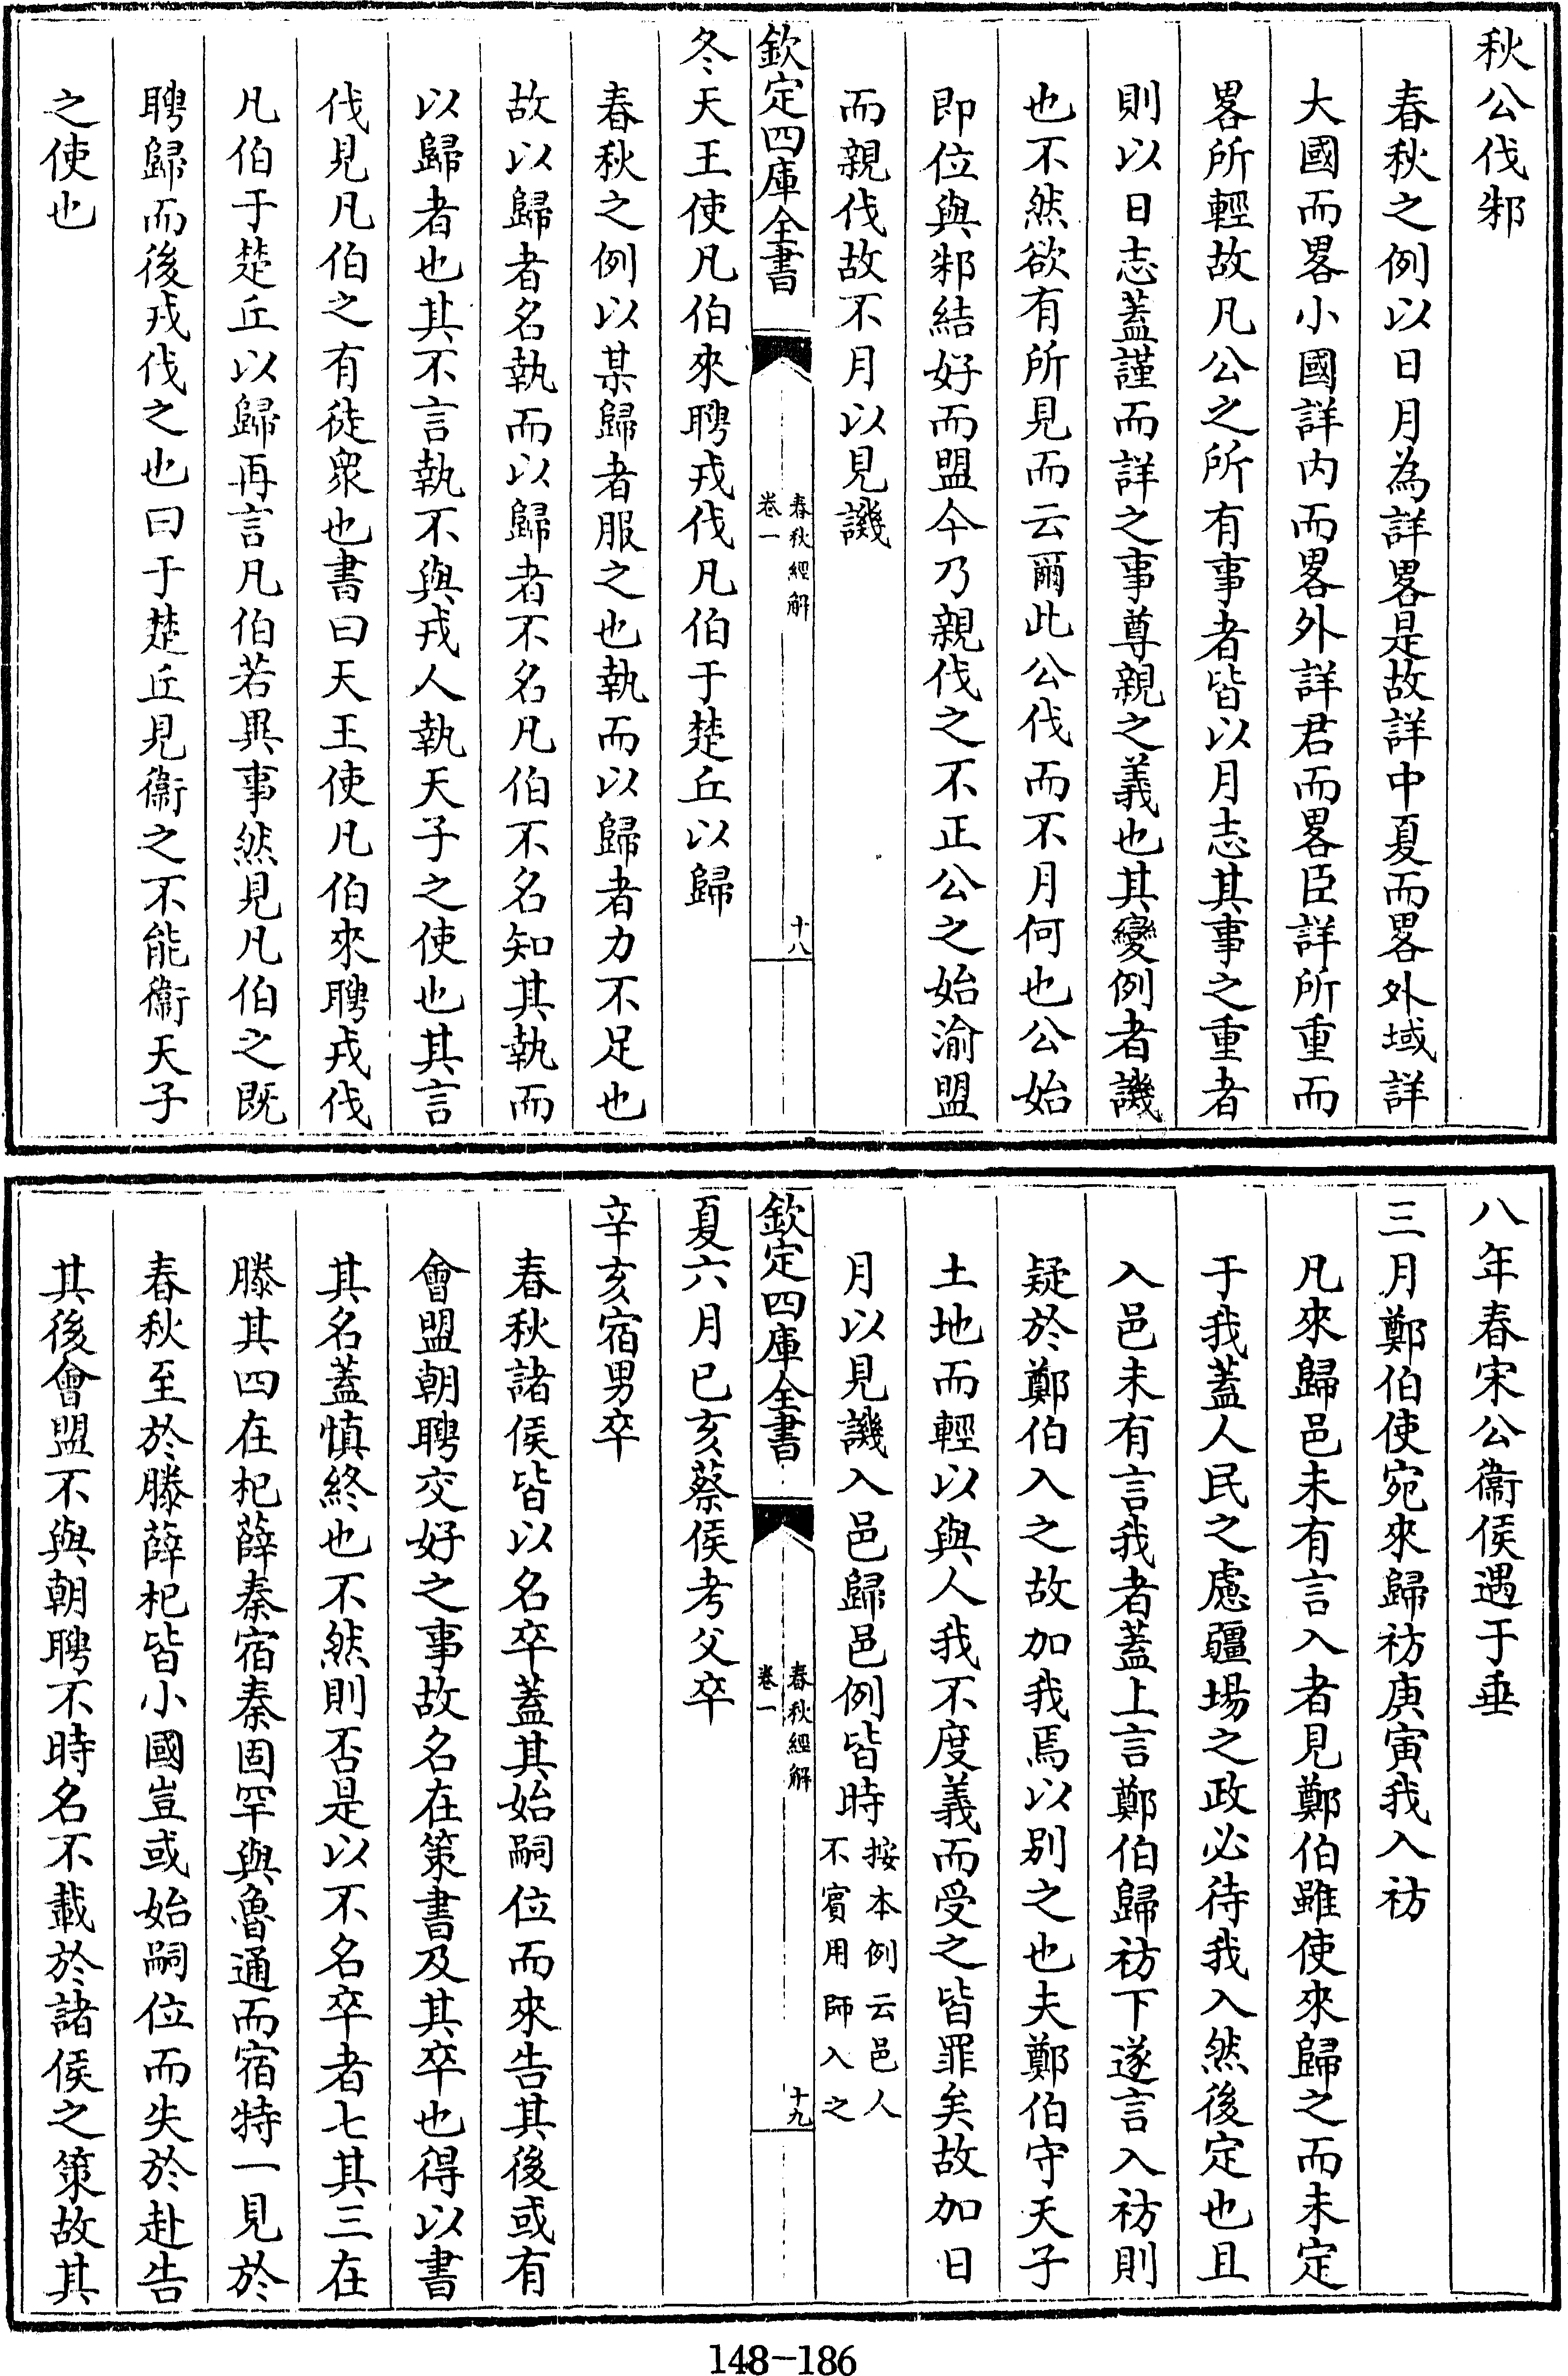 秋公伐邾
春秋之例以日月為詳畧是故詳中夏而畧外域詳
大國而畧小國詳内而畧外詳君而畧臣詳所重而
畧所輕故凡公之所有事者皆以月志其事之重者
則以日志蓋謹而詳之事尊親之義也其變例者譏
也不然欲有所見而云爾此公伐而不月何也公始
即位與邾結好而盟今乃親伐之不正公之始渝盟
而親伐故不月以見譏
欽定四庫全書
春秋經解
卷一
十八
冬天王使凡伯來聘戎伐凡伯于楚丘以歸
春秋之例以某歸者服之也執而以歸者力不足也
故以歸者名執而以歸者不名凡伯不名知其執而
以歸者也其不言執不與戎人執天子之使也其言
伐見凡伯之有徒衆也書曰天王使凡伯來聘戎伐
凡伯于楚丘以歸再言凡伯若異事然見凡伯之既
聘歸而後戎伐之也曰于楚丘見衞之不能衞天子
之使也
八年春宋公衞侯遇于垂
三月鄭伯使宛來歸祊庚寅我入祊
凡來歸邑未有言入者見鄭伯雖使來歸之而未定
于我蓋人民之處疆場之政必待我入然後定也且
入邑未有言我者蓋上言鄭伯歸祊下遂言入祊則
疑於鄭伯入之故加我焉以别之也夫鄭伯守天子
土地而輕以與人我不度義而受之皆罪矣故加日
月以見譏入邑歸邑例皆時按本例云邑人
不賓用師入之
欽定四庫全書
春秋經解
卷一
十九
夏六月已亥蔡侯考父卒
辛亥宿男卒
春秋諸侯皆以名卒蓋其始嗣位而來告其後或有
會盟朝聘交好之事故名在策書及其卒也得以書
其名蓋慎終也不然則否是以不名卒者七其三在
滕其四在杞薛秦宿秦固罕與魯通而宿特一見於
春秋至於滕薛杞皆小國豈或始嗣位而失於赴告
其後會盟不與朝聘不時名不載於諸侯之策故其
148-186